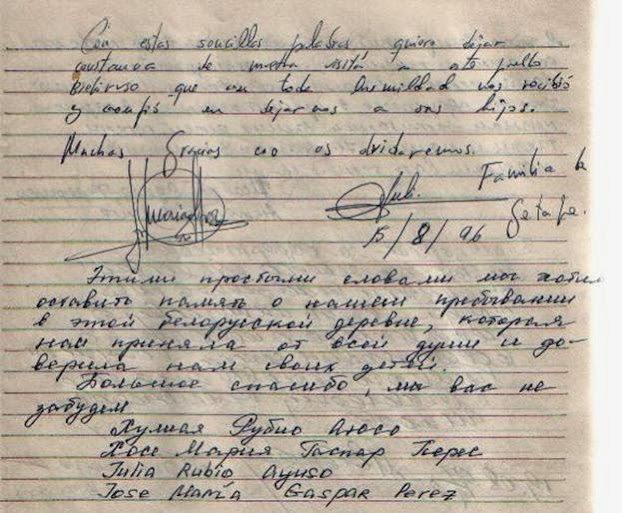 Con estas sencillas palabras quiero dejar
constancia de nuestra visita a este pueblo
Bieloruso que con toda humildad nos recibió
y confió en dejarnos a sus hijos.
Muchas Gracias no os olvidaremos.
Familia de
Getafe.
15/8/96
Этими простыми словами мы хотим
оставить память о нашем пребывании
в этой белорусской деревне, которая
нас приняла от всей души и до-
верила нам своих детей.
Большое спасибо, мы вас не
забудем
Хулиая Рубио Аюсо
Хосе Мария Гаспар Перес
Julia Rubio Ayuso
Jose María Gaspar Perez